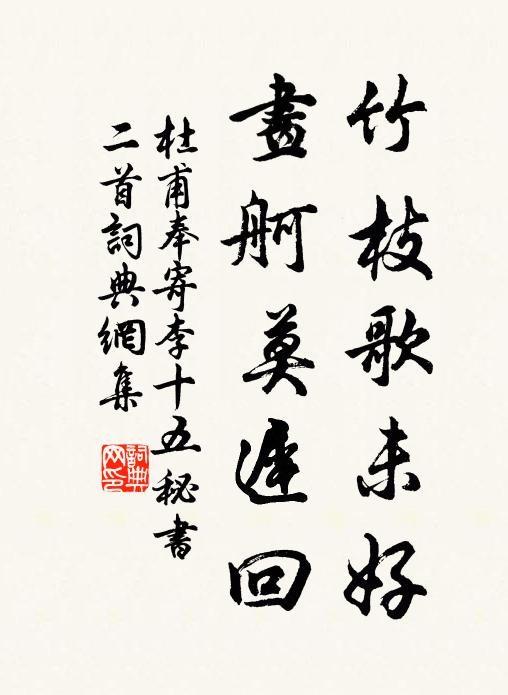 竹枝歌未好
畫舸莫遲回
杜甫奉寄李十五秘書
二首詞典網集
詞典
网印